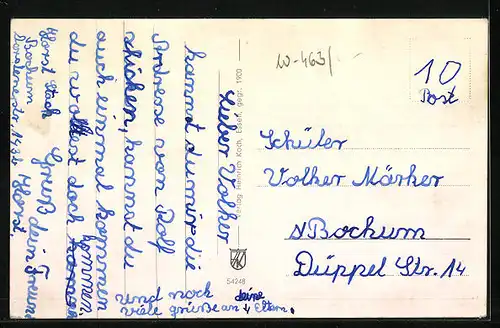 Lieber Volker
kannst du mir die
Adresse von Rolf
schicken, kannst du
auch einmal kommen
du wolltest doch
kommen.
Gruß dein Freund
Horst.
und noch
viele grüße an deine Eltern.
Horst
Bochum
143b
Verlag Heinrich Koch, Essen, gegr. 1903
54246
W-463/
10
Post
Schüler
Volker Märker
Bochum
Düppel Str. 14